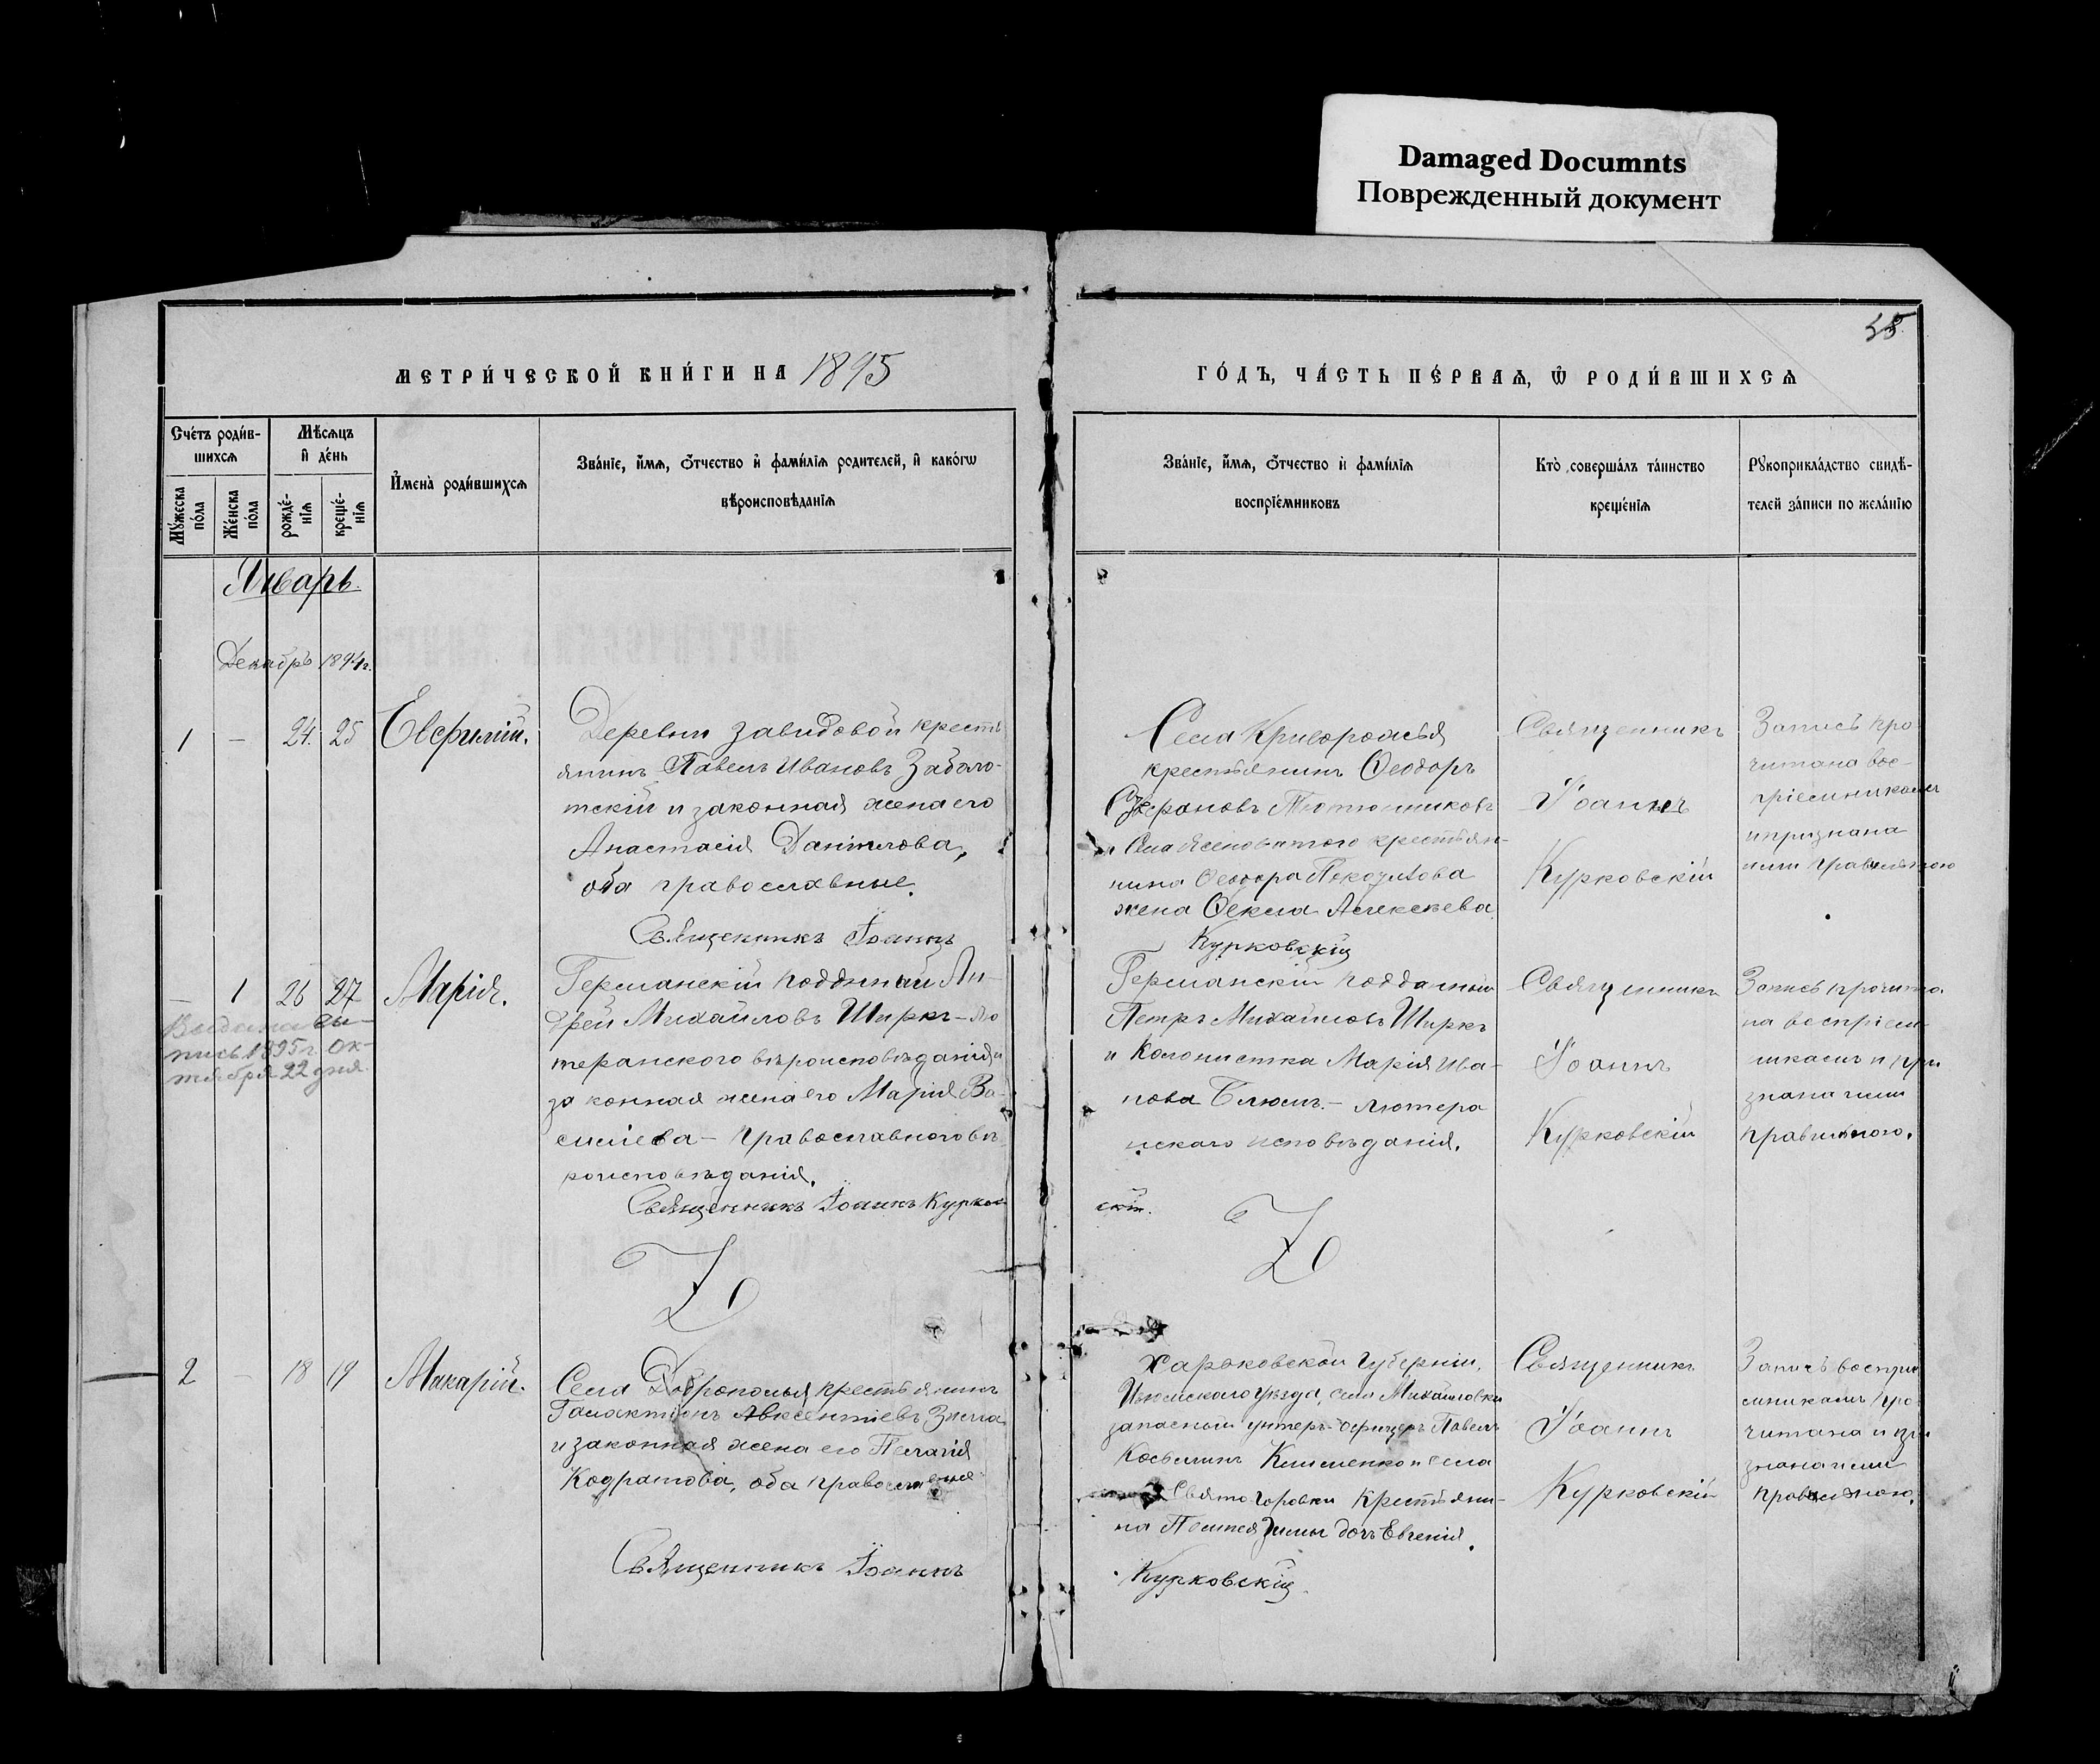 Damaged Documnts
Поврежденный документ
58
МЕТРИ́ЧЕСКОЙ КНИ́ГИ НА 1895
ГО́ДЪ, ЧА́СТЬ ПЕ́РВАѦ, Ѽ РОДИ́ВШИХСѦ
Сче́тъ роди́в-
шихсѧ
Мꙋ́жеска
по́ла
Же́нска
по́ла
Мѣ́сѧцъ
и҆ де́нь
рожде́-
нїѧ
креще́-
нїѧ
И҆мена̀ роди́вшихсѧ
Зва́нїе, и҆́мѧ, ѻ҆́тчество и҆ фами́лїѧ родителей, и҆ како́гѡ
вѣроисповѣ́данїѧ
Зва́нїе, и҆́мѧ, ѻ҆́тчество и҆ фами́лїѧ
воспрїе́мниковъ
Кто̀ соверша́лъ та́инство
креще́нїѧ
Рꙋкоприкла́дство свидѣ́-
телей за́писи по жела́нїю
Январь.
Декабрь 1894 г.
1 — 24. 25 Евфимій.
Деревни Завидовой кресть
янинъ Павелъ Ивановъ Заболо-
тскій и законная жена его
Анастасія Даніилова,
оба православные.
Священникъ Іоаннъ
Села Криворожья
крестьянинъ Ѳеодоръ
Тютюнниковъ
и села Ясеноватого крестьян-
нина Ѳеодора
жена Ѳекла Алексѣева
Курковскій
Священникъ
Іоаннъ
Курковскій
Запись про
читана вос-
пріемникамъ
и признана
ими правильною
.
— 1 26 27 Марія.
Выдана вы-
пись 1895 г. Ок-
тября 22 дня.
Германскій подданный Ан-
дрей Михайловъ Ширкъ - лю
теранского вѣроисповѣданія и
законная жена его Марія Ва-
силіева - православного вѣ
роисповѣданія.
Священникъ Іоаннъ Курков
Германскій подданный
Петръ Михайловъ Ширкъ
и колонистка Марія Ива-
нова Блюмъ. - лютера
нскаго исповѣданія.
скій.
Священникъ
Іоаннъ
Курковскій
Запись прочита
на воспріем
никамъ и при
знана ими
правильною.
2 — 18 19 Макарій.
Села Доброполья крестьянинъ
Галактіонъ Авксентіевъ Зима
и законная жена его Пелагія
Кодратова, оба православные
Священникъ Іоаннъ
Харьковской губерніи,
Изюмскаго уѣзда, села Михайловки
запасный унтеръ-офицеръ Павелъ
Косьминъ Клименко и села
Святогоровки крестьяни-
на Зимы дочь Евгенія.
Курковскій.
Священникъ
Іоаннъ
Курковскій
Запись воспріе
мникамъ про
читана и при
знана ими
правильною.